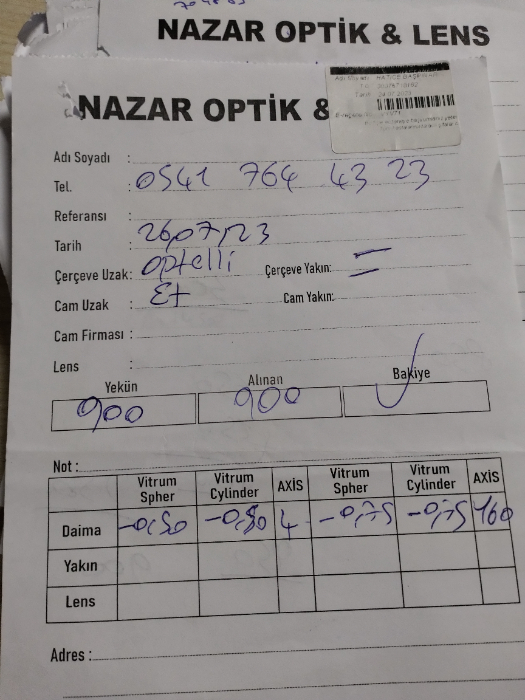 NAZAR OPTİK & LENS
NAZAR OPTİK &
Adı Soyadı :
Tel. : 0541 764 43 23
Referansı :
Tarih : 26,07,23
Çerçeve Uzak: optelli Çerçeve Yakın: =
Cam Uzak: Et Cam Yakın:
Cam Firması :
Lens :
Yekün Alınan Bakiye
900 900 ✓
Not :
Vitrum Spher Vitrum Cylinder AXİS Vitrum Spher Vitrum Cylinder AXİS
Daima -0,50 -0,50 4 -0,75 -0,75 160
Yakın
Lens
Adres :